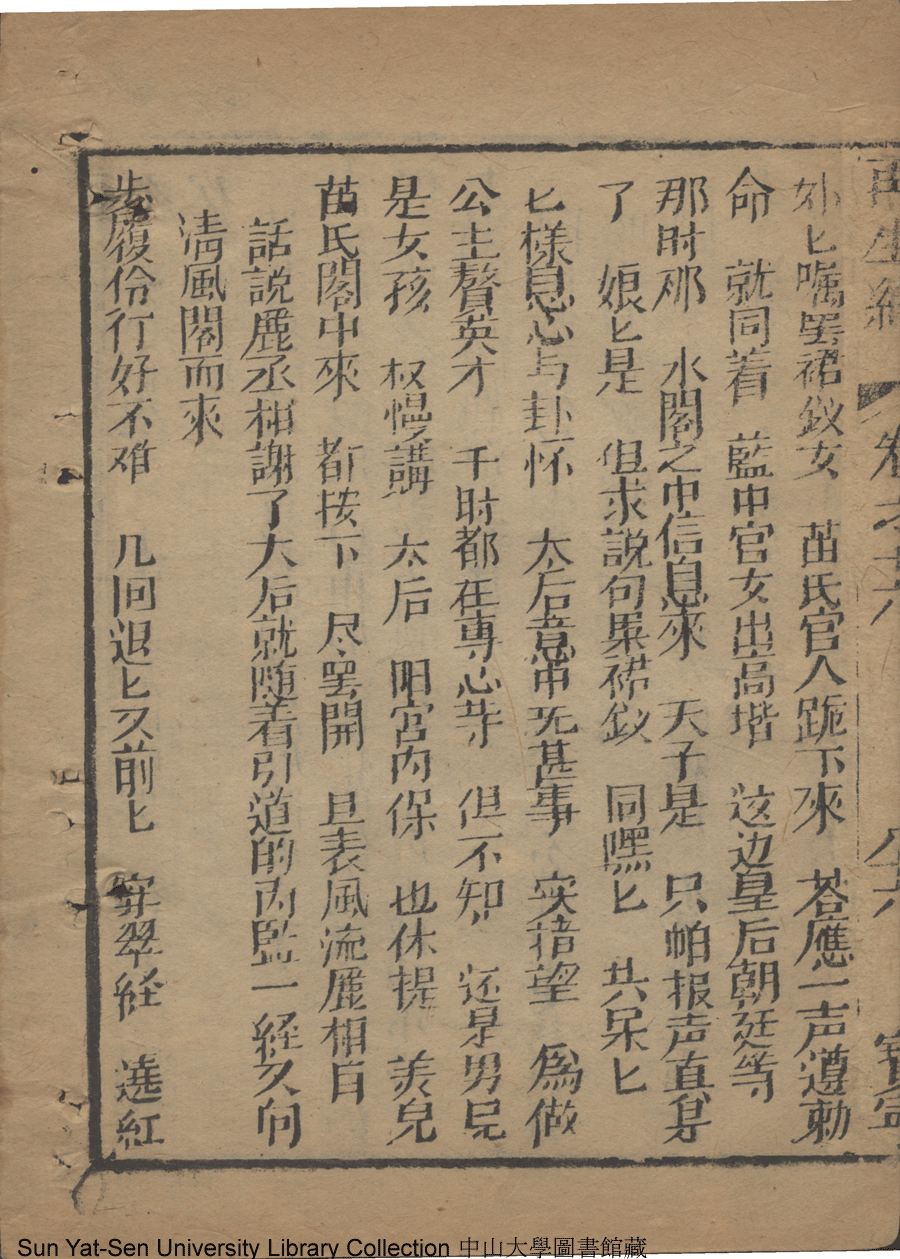 再生緣 卷才十六 全六 寶寧
外匕嘱罢裙釵女 苗氏官人跪下來 荅應一声遵勅
命 就同着 藍中官女出高堦 这边皇后朝廷等
那时那 水閣之中信息來 天子是 只帕报声真身
了 娘匕是 但求説句累裙釵 同嘿匕 共呆匕
匕樣息心与卦怀 太后意中无甚事 突指望 為做
公主贅英才 千时都在專心等 但不知 还是男児
是女孩 权慢講 太后 阳宫内保 也休提 美兒
苗氏閣中來 都按下 尽罢開 且表風流鹿相自
話説鹿丞相謝了太后就随着引道的内監一経久向
清風閣而來
步履伶行好不难 几回退匕久前匕 穿翠経 遶紅
Sun Yat-Sen University Library Collection 中山大學圖書館藏